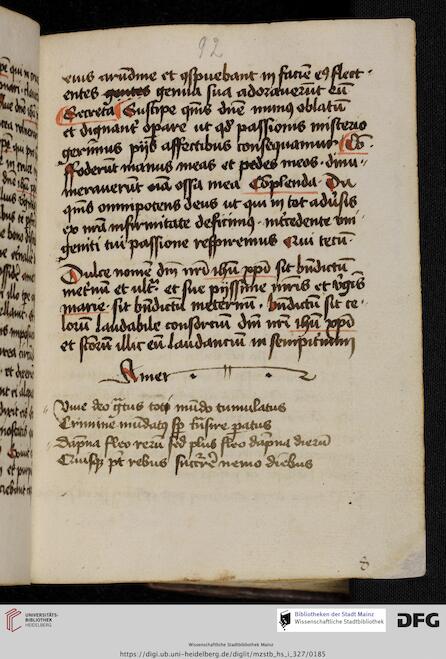 92
eius arundine et conspuebant in faciem eius flect
entes gentes genua sua adoraverunt eum
Secreta Suscipe quesumus domine munus oblatum
et dignanter operare ut quod passionis misterio
gerimus piis affectibus consequamur Co
Foderunt manus meas et pedes meos dinu
meraverunt omnia ossa mea Complenda Da
quesumus omnipotens deus ut qui in tot adversis
ex nostra infirmitate deficimus intercedente uni
geniti tui passione respiremus Qui tecum
Dulce nomen domini nostri ihesu christi sit benedictum
in eternum et ultra et sue piissime matris et virginis
marie sit benedictum in eternum benedictum sit ce
lorum laudabile consorcium domini nostri ihesu christi
et sanctorum illic eum laudancium in sempiternum
Amen
Vive deo gratus toti mundo tumulatus
Crimine mundatus semper transire paratus
Dampna fleo rerum sed plus fleo dampna dierum
Quisque potest rebus succurrere nemo diebus
8
UNIVERSITÄTS-
BIBLIOTHEK
HEIDELBERG
Bibliotheken der Stadt Mainz
Wissenschaftliche Stadtbibliothek
DFG
Wissenschaftliche Stadtbibliothek Mainz
https://digi.ub.uni-heidelberg.de/diglit/mzstb_hs_i_327/0185